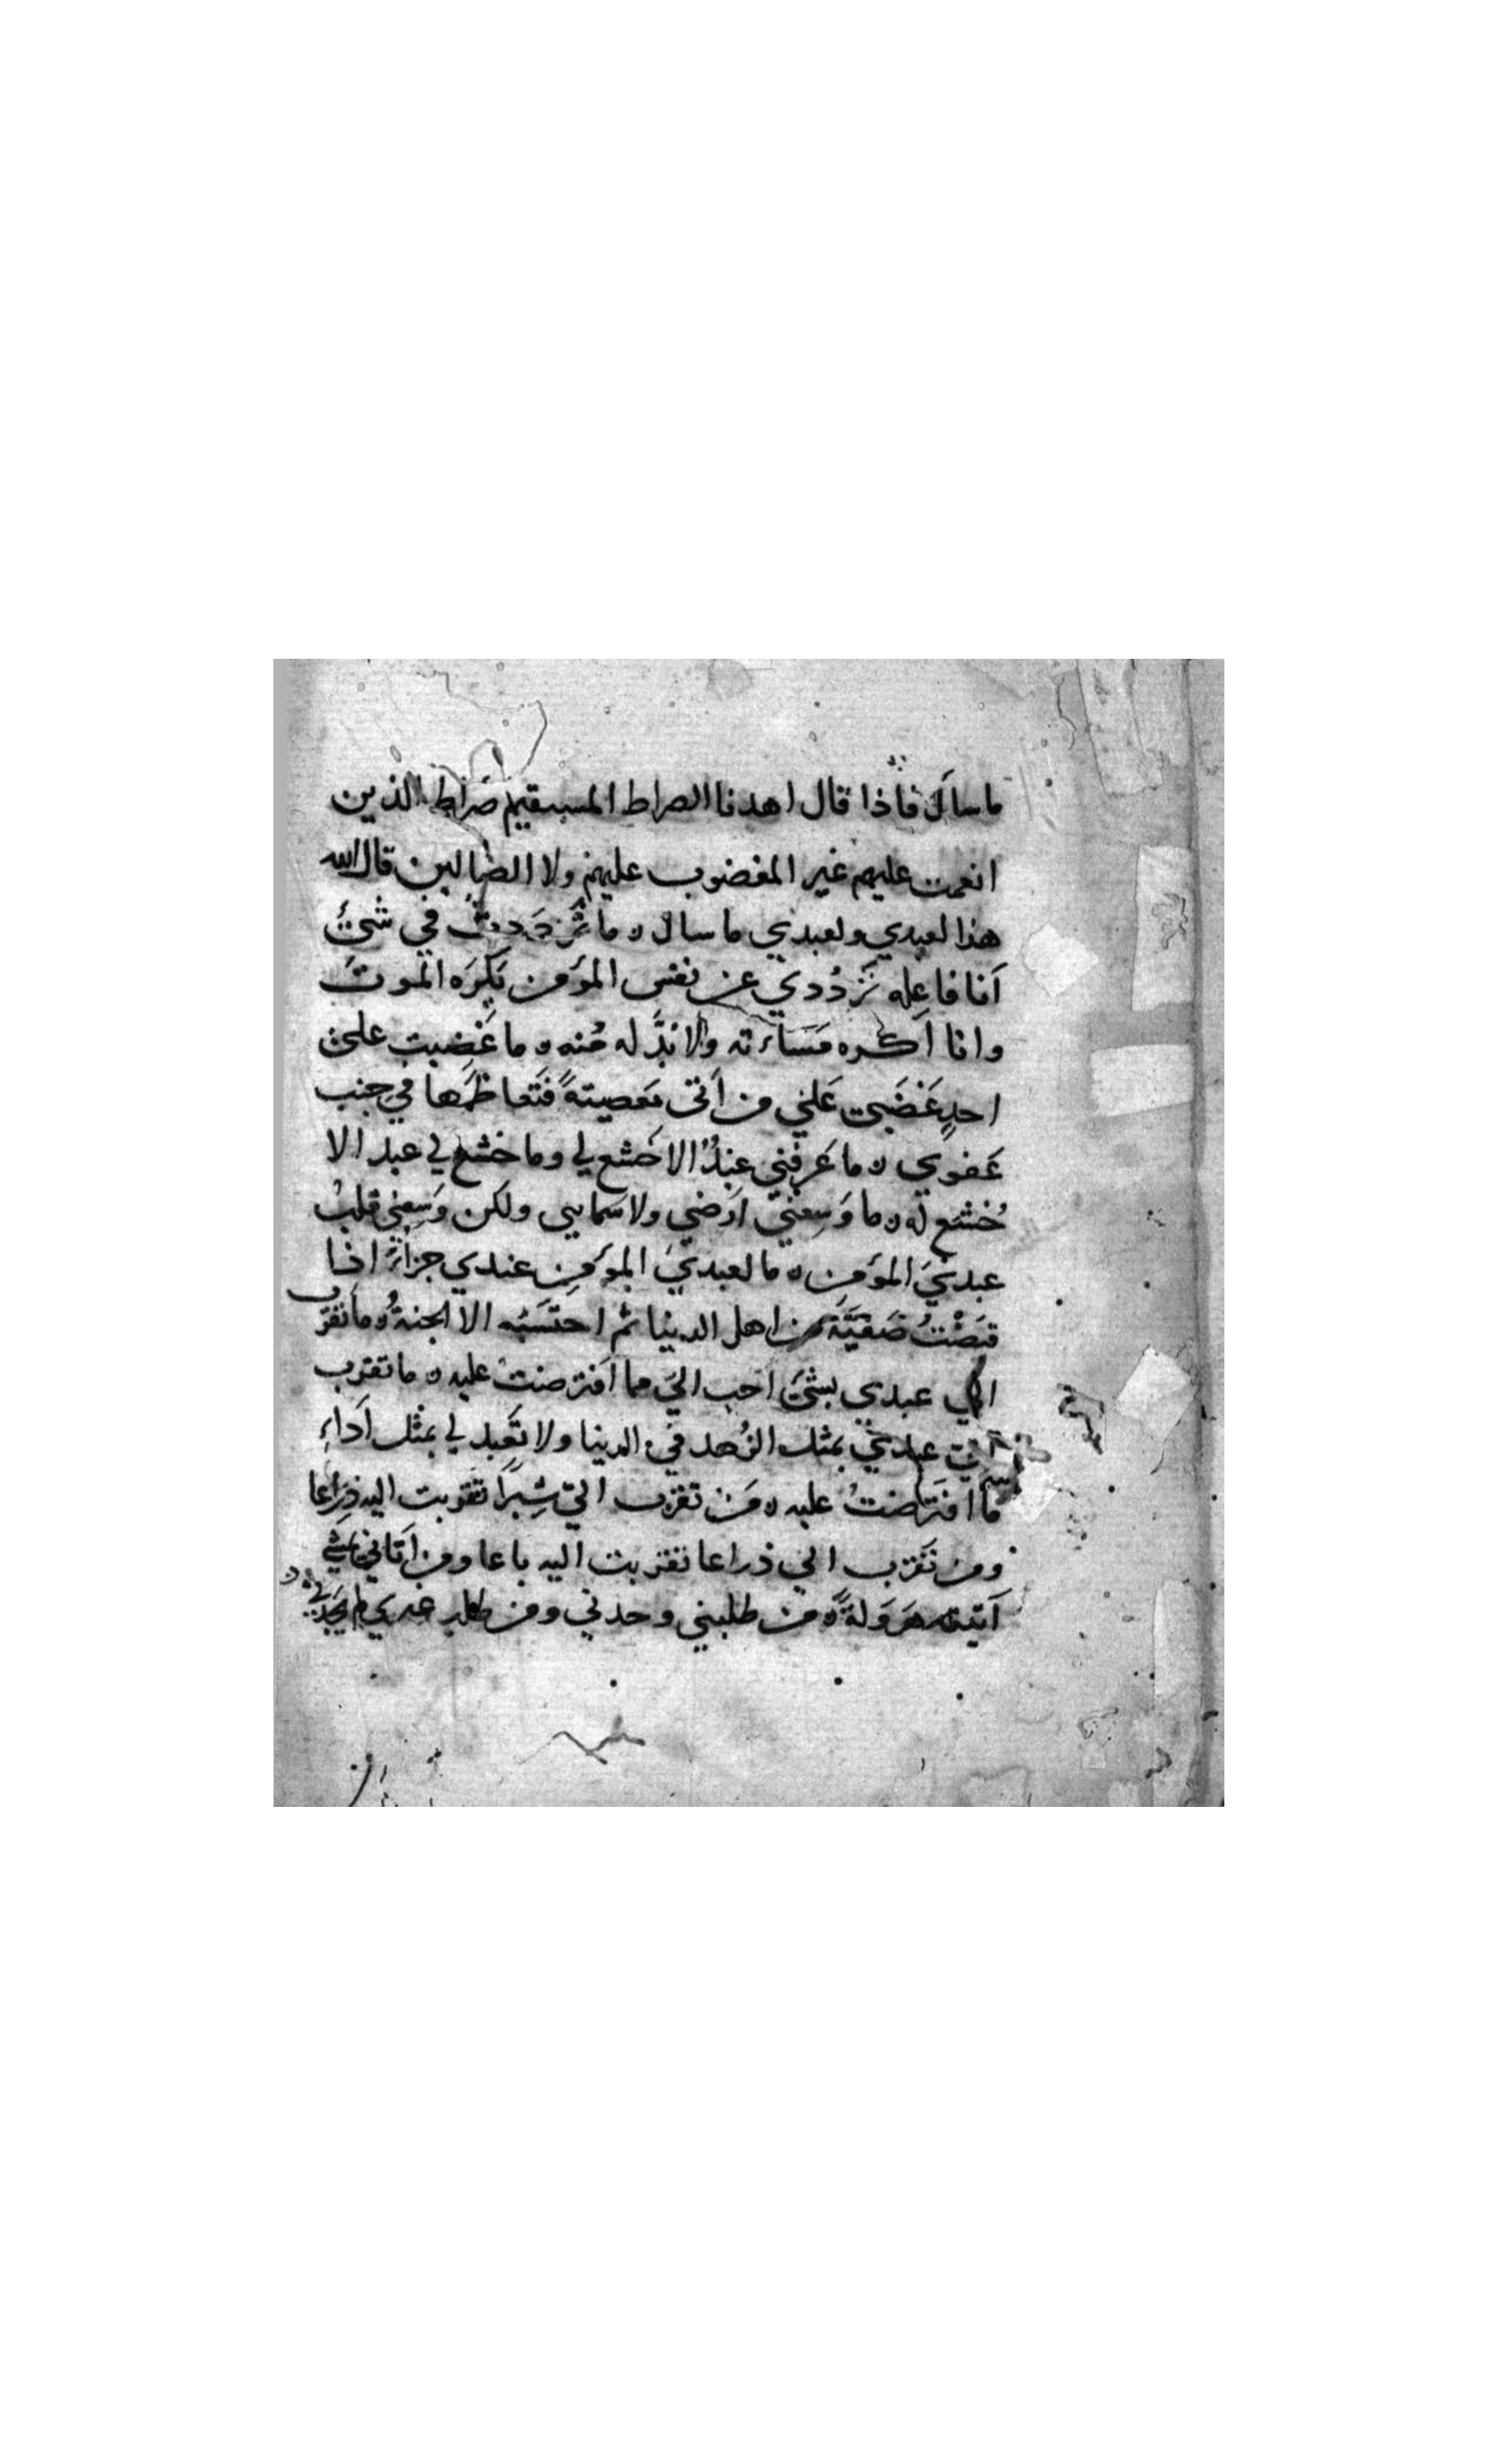 ما سأل فاذا قال اهدنا الصراط المستقيم صراط الذين
انعمت عليهم غير المغضوب عليهم ولا الضالين قال الله
هذا لعبدي ولعبدي ما سال ه ما تَردَدتُ في شئ
أنا فاعِله تَرَدُدي عن نفس المؤمن يَكرَه الموتَ
وانا أكره مَسَاءته ولا بُدَّ له مُنه ه ما غَضِبت على
احدٍ غَضَبي عَلي من أتى مَعصيتهً فَتَعاظمَها في جنب
عَفوي ه ما عَرفني عبدٌ الا خَشع لي وما خشع لي عبد الا
خُشع له ه ما وَسِعني ارَضي ولا سمايي ولكن وَسِعني قلبُ
عبديَ المؤمن ه ما لعبديَ المؤمن عندي جزاءً اذا
قبَضْتُ صَفيَّهَ من اهل الدنيا ثم احتَسَبَه الا الجنةُ ه ما تقرّب
الي عبدي بشئ احَب اليَ مما افترضتُ عليه ه ما تقرب
عبدي بمثل الزُهد في الدنيا ولا تَعَبد لي بمثل أَداءِ
ما افتَرضتُ عليه ه مَن تقرب اليّ شِبرًا تقربت اليه ذراعا
ومن تَقَرب الي ذراعا تقربت اليه باعا ومن أتاني يمشي
أتيته هَروَلةً ه من طلبني وجدني ومن طلب غيري لم يَجدني